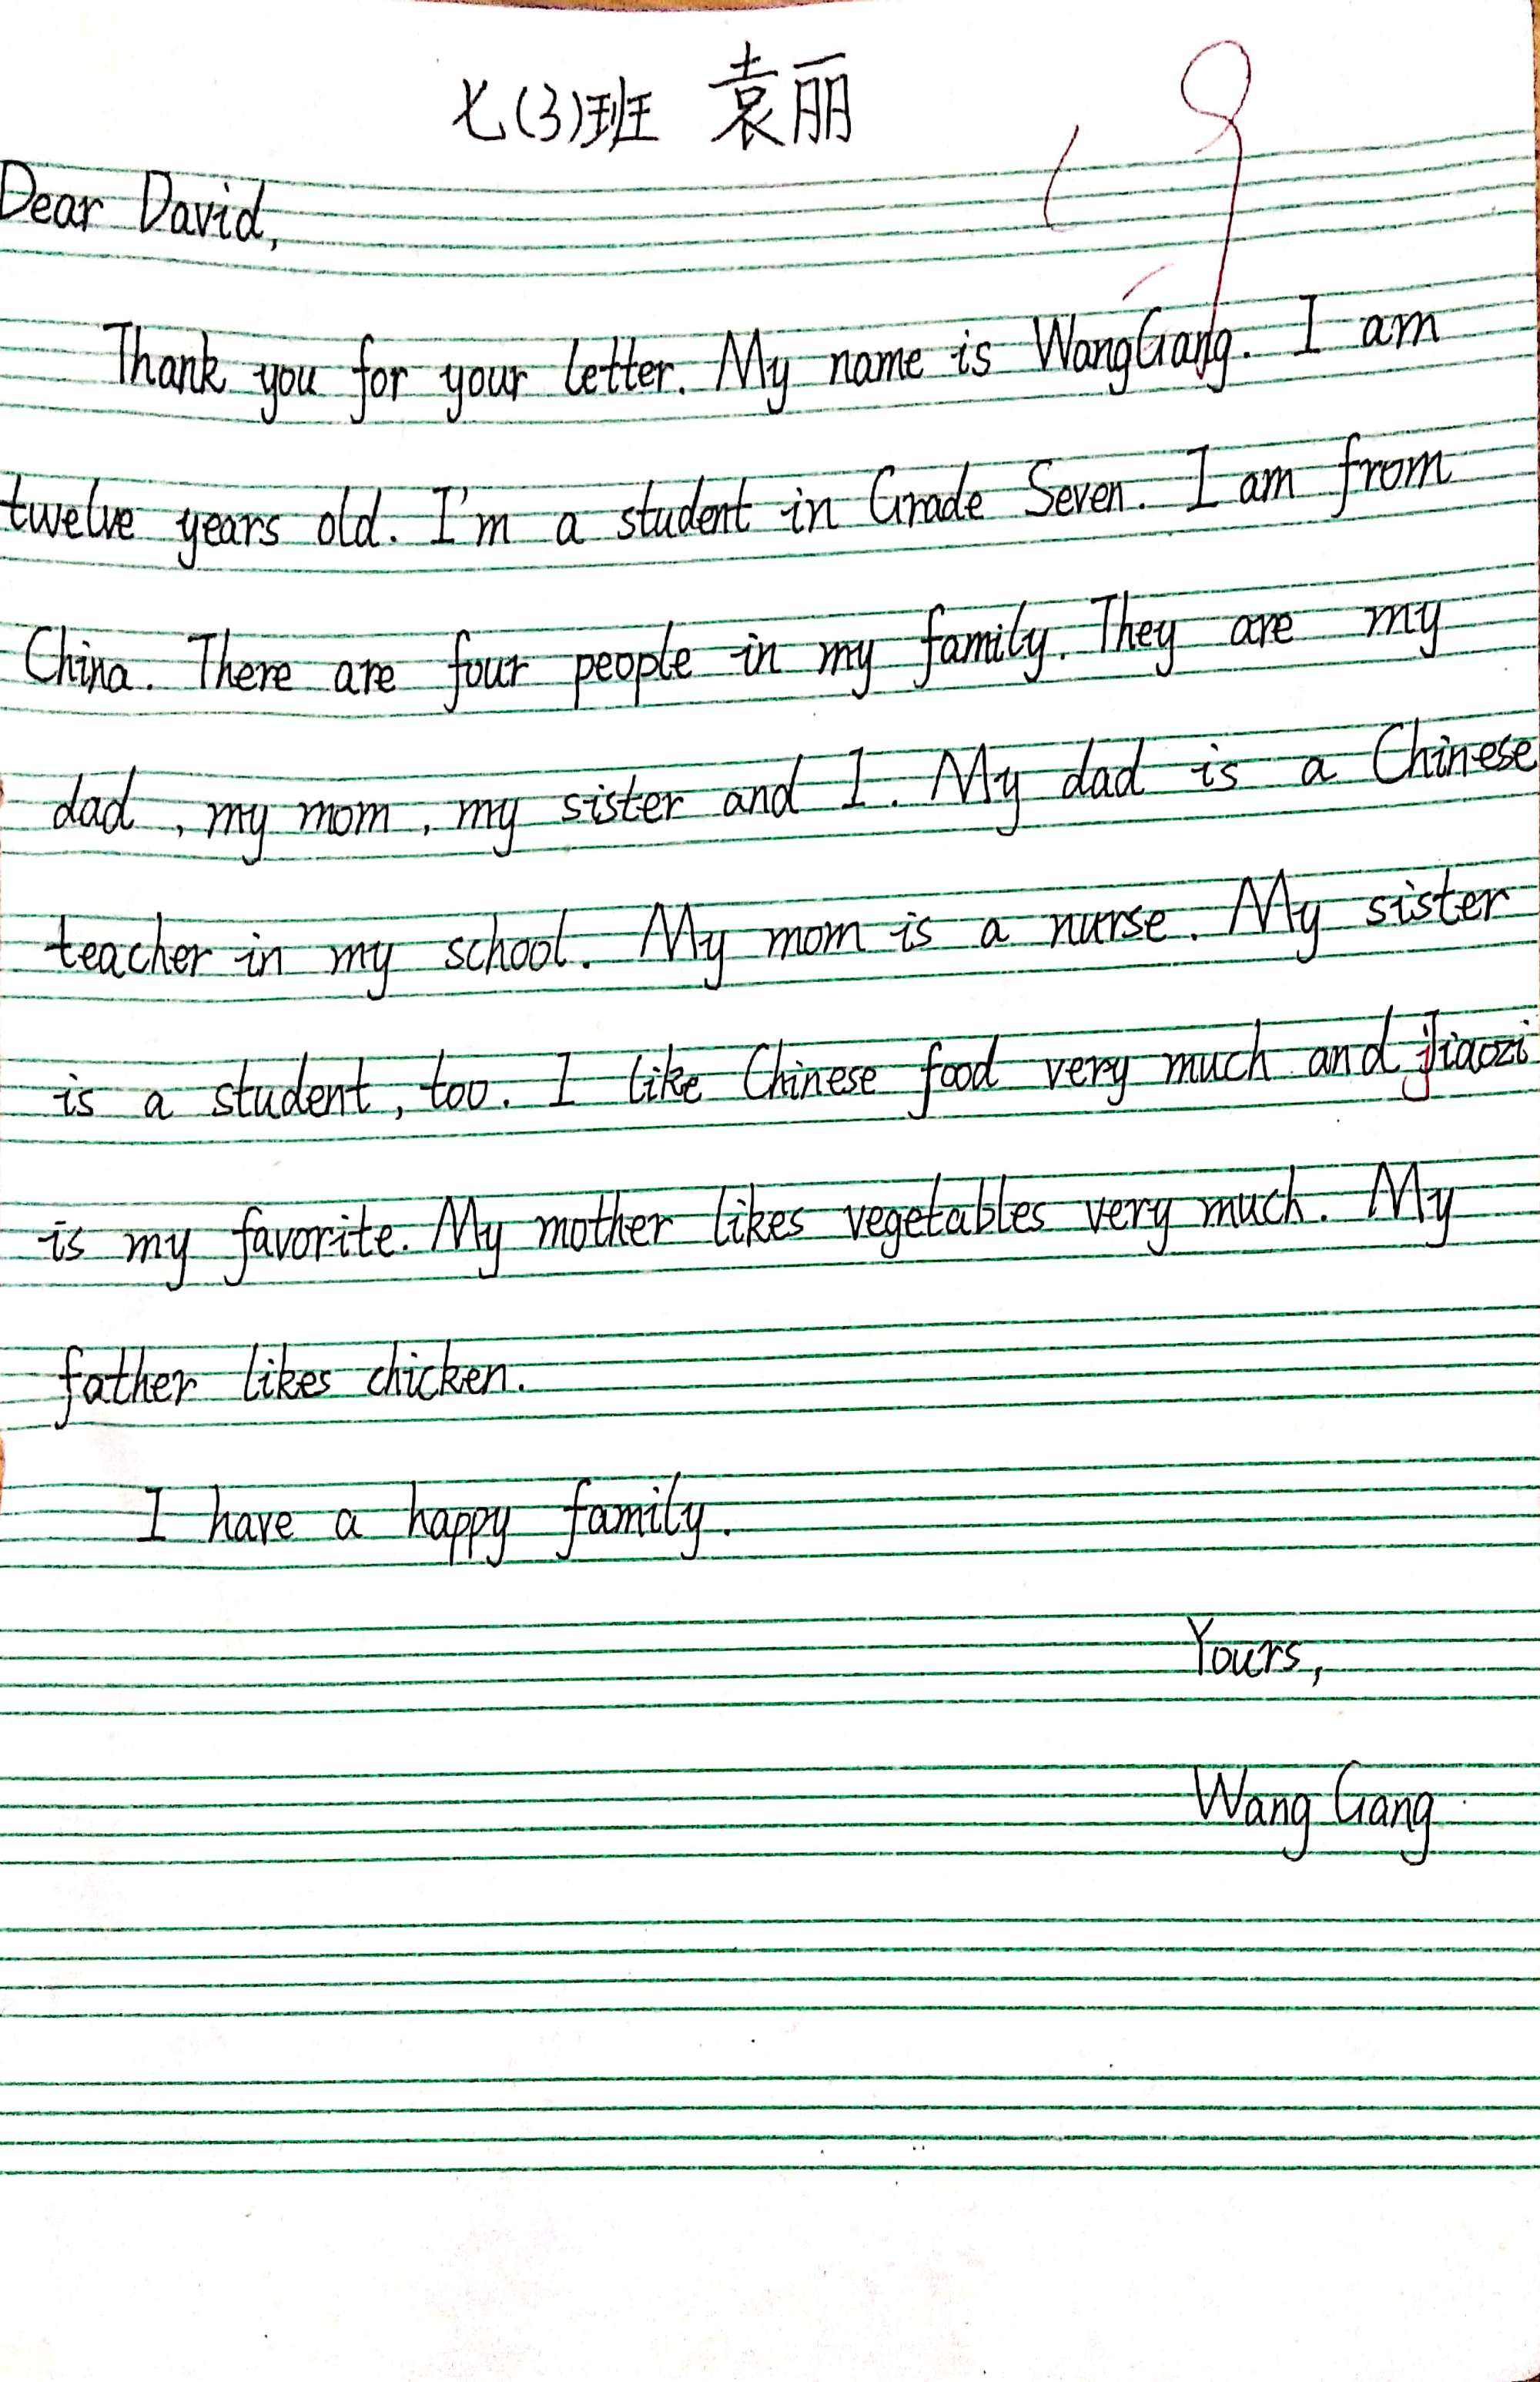 七(3)班 袁丽
Dear David,
Thank you for your letter. My name is WangGang. I am
twelve years old. I'm a student in Grade Seven. I am from
China. There are four people in my family. They are my
dad, my mom, my sister and I. My dad is a Chinese
teacher in my school. My mom is a nurse. My sister
is a student, too. I like Chinese food very much and jiaozi
is my favorite. My mother likes vegetables very much. My
father likes chicken.
I have a happy family.
Yours,
Wang Gang